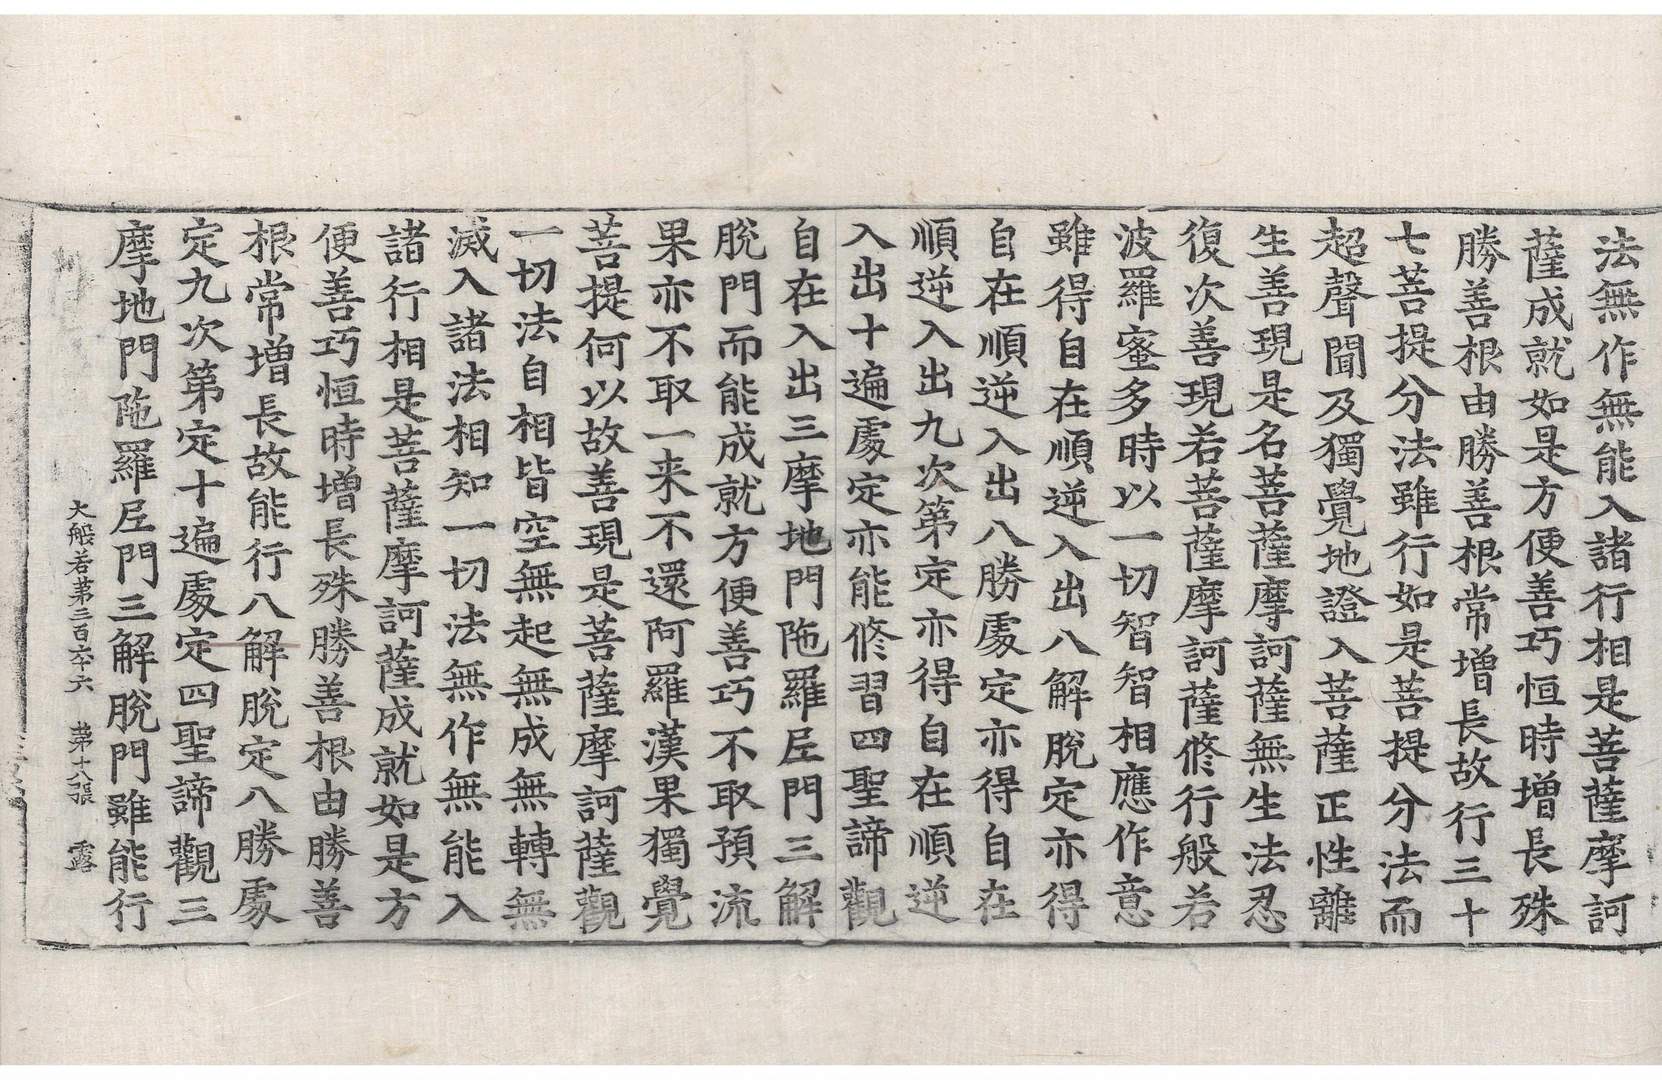 法無作無能入諸行相是菩薩摩訶
薩成就如是方便善巧恒時增長殊
勝善根由勝善根常增長故行三十
七菩提分法雖行如是菩提分法而
超聲聞及獨覺地證入菩薩正性離
生善現是名菩薩摩訶薩無生法忍
復次善現若菩薩摩訶薩修行般若
波羅蜜多時以一切智智相應作意
雖得自在順逆入出八解脫定亦得
自在順逆入出八勝處定亦得自在
順逆入出九次第定亦得自在順逆
入出十遍處定亦能修習四聖諦觀
自在入出三摩地門陁羅尼門三解
脫門而能成就方便善巧不取預流
果亦不取一来不還阿羅漢果獨覺
菩提何以故善現是菩薩摩訶薩觀
一切法自相皆空無起無成無轉無
滅入諸法相知一切法無作無能入
諸行相是菩薩摩訶薩成就如是方
便善巧恒時增長殊勝善根由勝善
根常增長故能行八解脫定八勝處
定九次第定十遍處定四聖諦觀三
摩地門陁羅尼門三解脫門雖能行
大般若第三百六十六 第十八張 露